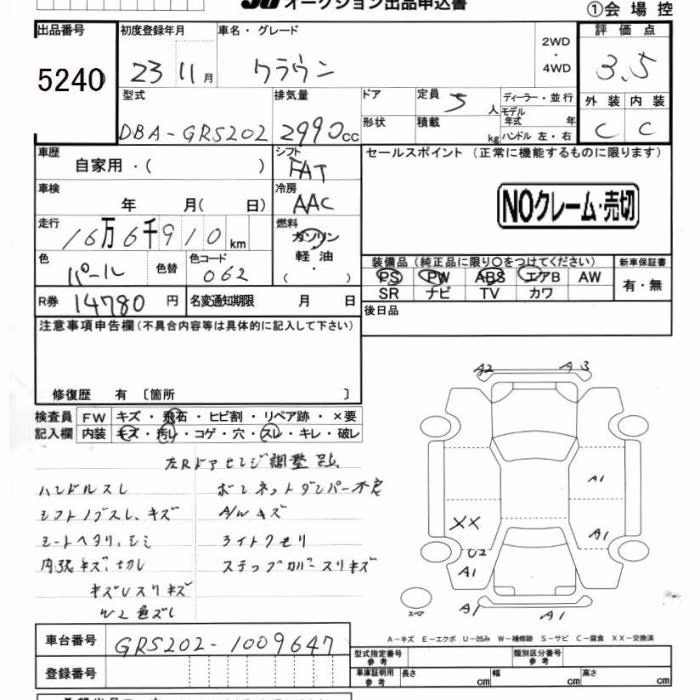 オークション出品申込書
①会場控
出品番号
5240
初度登録年月
23 11月
車名・グレード
クラウン
2WD
・
4WD
評価点
3.5
型式
DBA-GRS202
排気量
2990cc
ドア
形状
定員 5 人
積載 kg
ディーラー・並行
モデル年式 年
ハンドル 左・右
外装 内装
C C
車歴
自家用・( )
シフト
FAT
セールスポイント (正常に機能するものに限ります)
NOクレーム・売切
車検
年 月( 日)
冷房
AAC
走行
16万6千910km
燃料
ガソリン
軽油
( ・ )
色
パール
色替
色コード
062
装備品 (純正品に限り○をつけてください)
PS PW ABS エアB AW
SR ナビ TV カワ
新車保証書
有・無
R券 14780円
名変通知期限 月 日
後日品
注意事項申告欄(不具合内容等は具体的に記入して下さい)
修復歴 有 〔箇所 〕
検査員
記入欄
FW キズ・飛石・ヒビ割・リペア跡・×要
内装 キズ・汚レ・コゲ・穴・スレ・キレ・破レ
左Rドアヒンジ調整跡
ハンドルスレ
ボンネットダンパー不良
シフトノブスレ、キズ
A/Wキズ
シートヘタリ、シミ
ライトクモリ
内張キズ、切レ
ステップカバースリキズ
キズUスリキズ
W2色ズレ
A2
A3
A1
A1
XX
U2
A1
A1
A1
A1
スペア
A-キズ E-エクボ U-凹み W-補修跡 S-サビ C-腐食 XX-交換済
車台番号
GRS202-1009647
登録番号
型式指定番号
参考
類別区分番号
参考
車庫証明用
参考
長さ cm
幅 cm
高さ cm